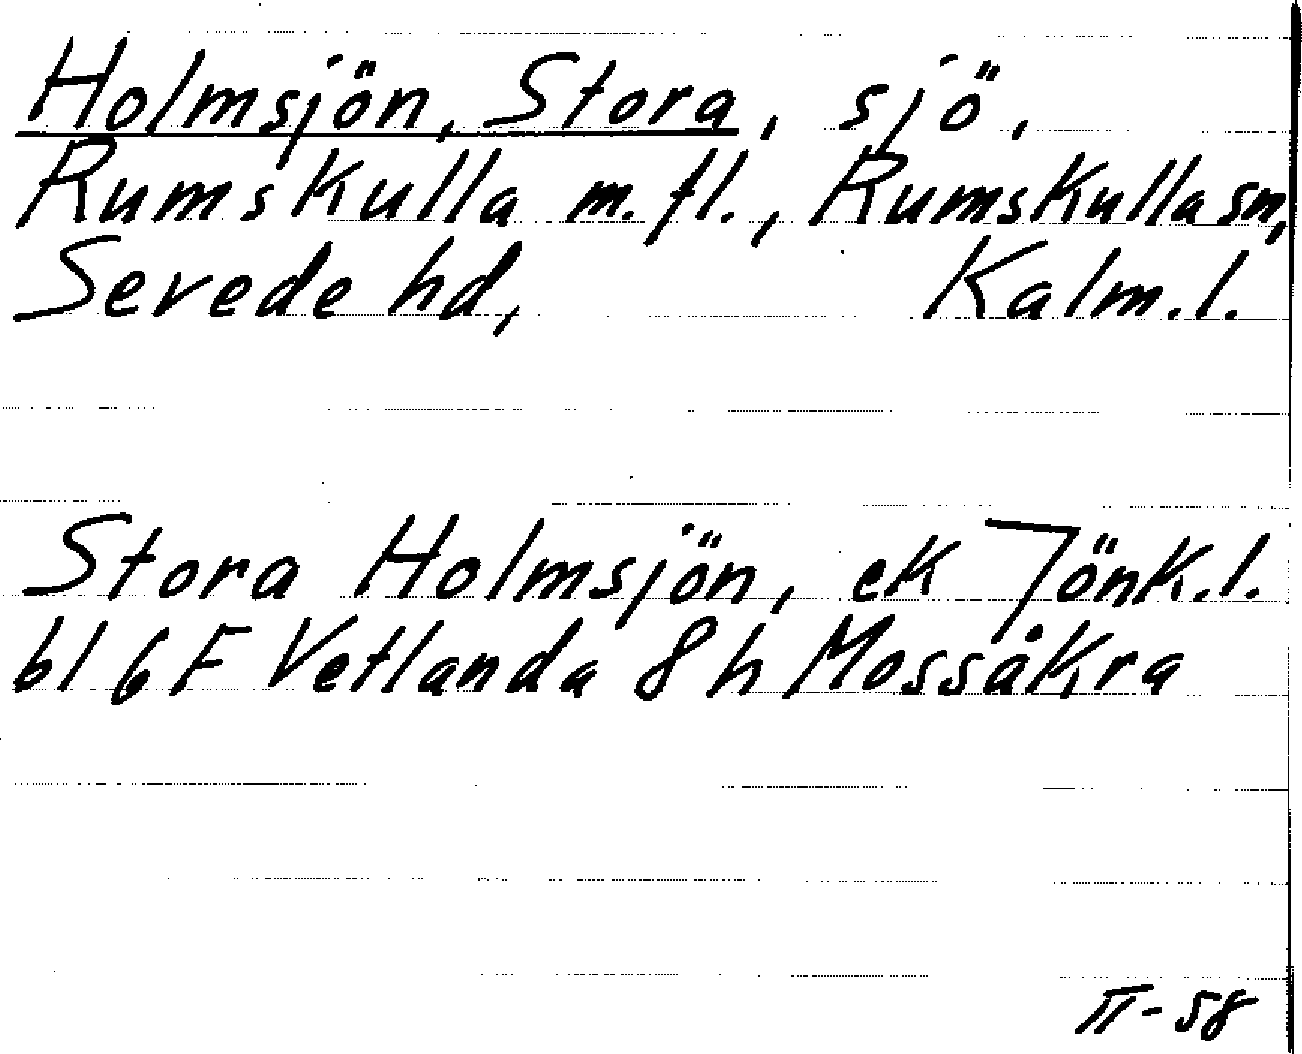 Holmsjön, Stora, sjö,
Rumskulla m.fl., Rumskulla sn,
Sevede hd, Kalm.l.
Stora Holmsjön, ek Jönk.l.
bl 6F Vetlanda 8h Mossåkra
II-58